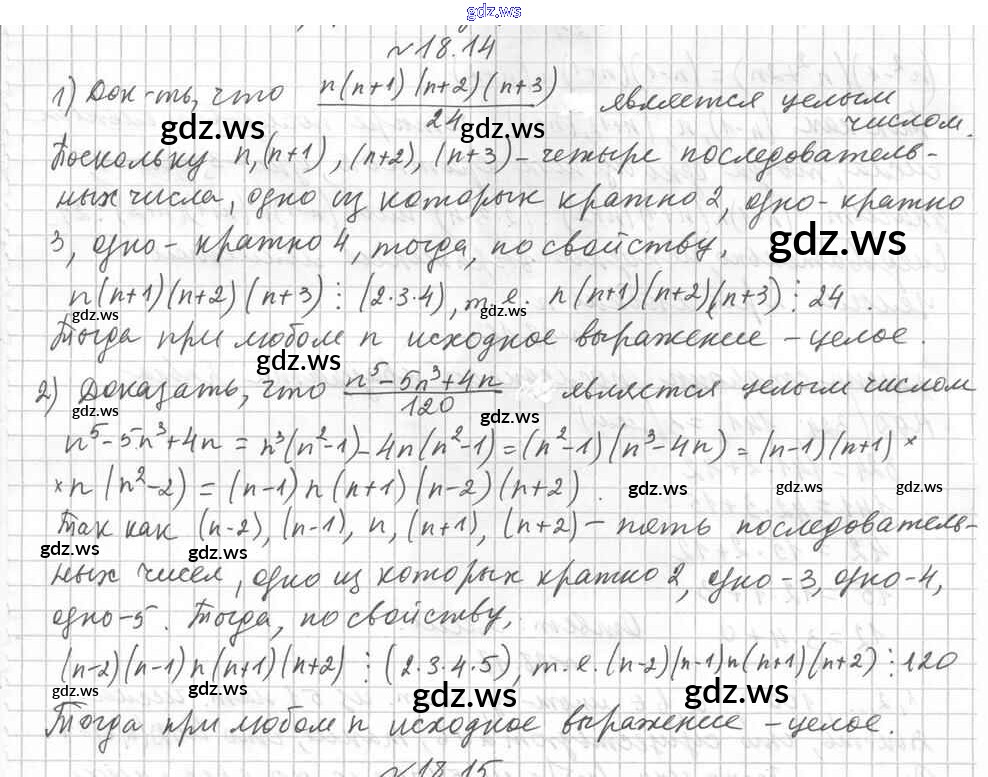 gdz.ws
№18.14
1) Док-ть, что n(n+1)(n+2)(n+3)/24 является целым
числом.
gdz.ws gdz.ws
Поскольку n, (n+1), (n+2), (n+3) – четыре последователь-
ных числа, одно из которых кратно 2, одно - кратно
3, одно - кратно 4, тогда, по свойству,
gdz.ws
n(n+1)(n+2)(n+3) ⋮ (2·3·4), т.е. n(n+1)(n+2)(n+3) ⋮ 24.
gdz.ws gdz.ws
Тогда при любом n исходное выражение – целое.
gdz.ws
2) Доказать, что n⁵-5n³+4n/120 является целым числом
gdz.ws gdz.ws
n⁵-5n³+4n = n³(n²-1)-4n(n²-1) = (n²-1)(n³-4n) = (n-1)(n+1) ×
× n(n²-2) = (n-1)n(n+1)(n-2)(n+2).
gdz.ws gdz.ws gdz.ws
Так как (n-2), (n-1), n, (n+1), (n+2) – пять последователь-
gdz.ws gdz.ws
ных чисел, одно из которых кратно 2, одно -3, одно -4,
одно -5. Тогда, по свойству,
(n-2)(n-1)n(n+1)(n+2) ⋮ (2·3·4·5), т.е. (n-2)(n-1)n(n+1)(n+2) ⋮ 120
gdz.ws gdz.ws gdz.ws gdz.ws
Тогда при любом n исходное выражение – целое.
№18.15